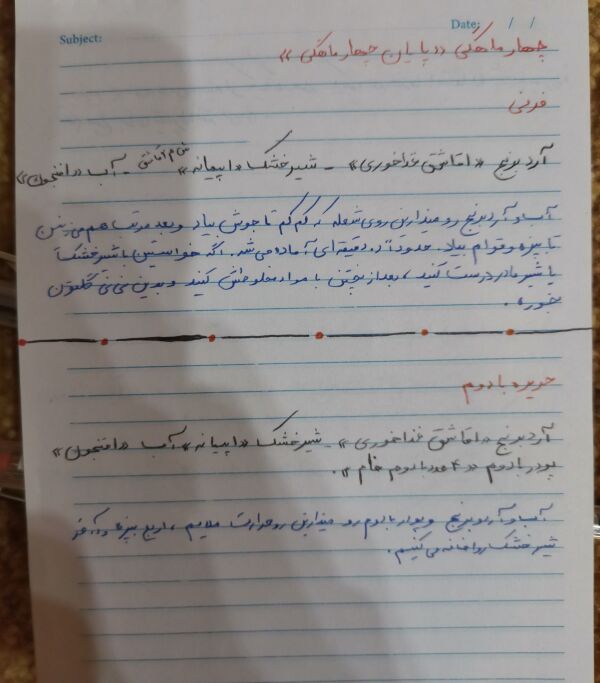 Subject: Date: / /
چهار ماهگی «پایان چهار ماهگی»
فرنی
آرد برنج «۱ قاشق غذاخوری» - شیر خشک «۱ پیمانه» - آب «۱ فنجون»
آب و آرد برنج رو میذارین روی شعله که کم کم تا جوش بیاد و بعد مرتب هم میزنین
تا بپزه و قوام بیاد. حدود ۵ دقیقه ای آماده می شه. اگه خواستین با شیر خشک
یا شیر مادر درست کنید، بعد از پختن با مواد مخلوطش کنید و بدین نی نی گلتون
بخوره.
حریره بادوم
آرد برنج «۱ قاشق غذاخوری» - شیر خشک «۱ پیمانه» آب «۱ فنجون»
پودر بادوم «۴ عدد بادوم خام».
آب و آرد برنج و پودر بادوم رو میذارین رو حرارت ملایم، بپزه و آخر
شیر خشک رو اضافه می کنیم.